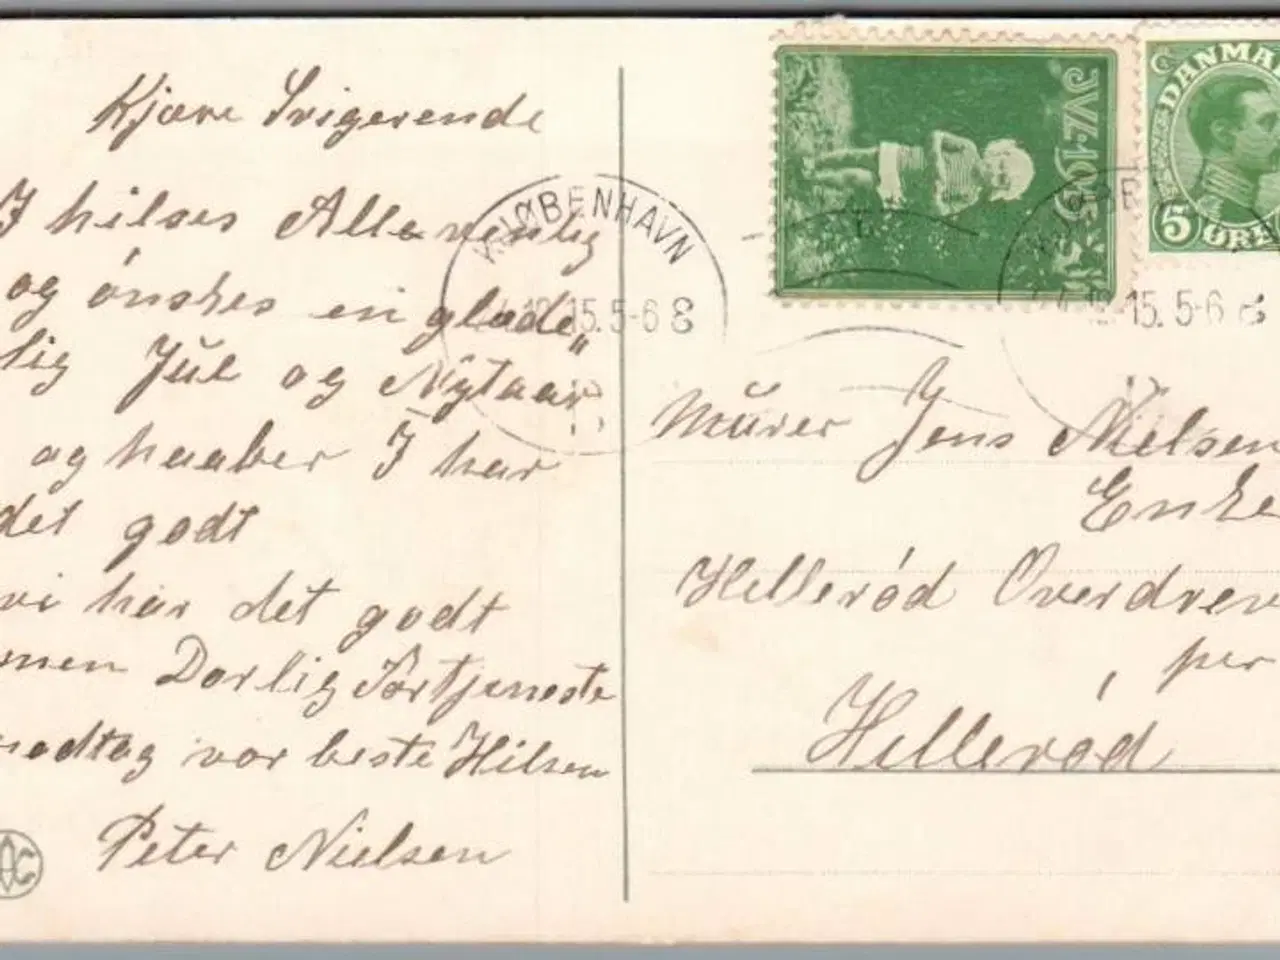 Kjære Svigerende
I hilses Alle venlig
og ónskes en glæde„
lig Jul og Nÿtaar
og haaber I har
det godt
vi har det godt
men Darlig Förtjeneste
modtag vor beste Hilsen
Peter Nielsen
KJØBENHAVN
12.15.5-6 E
JVL 1915
DANMA
5 ØRE
15. 5-6 E
Mŭrer Jens Nielsen
Enke
Hilleród Overdrev
per
Hilleród